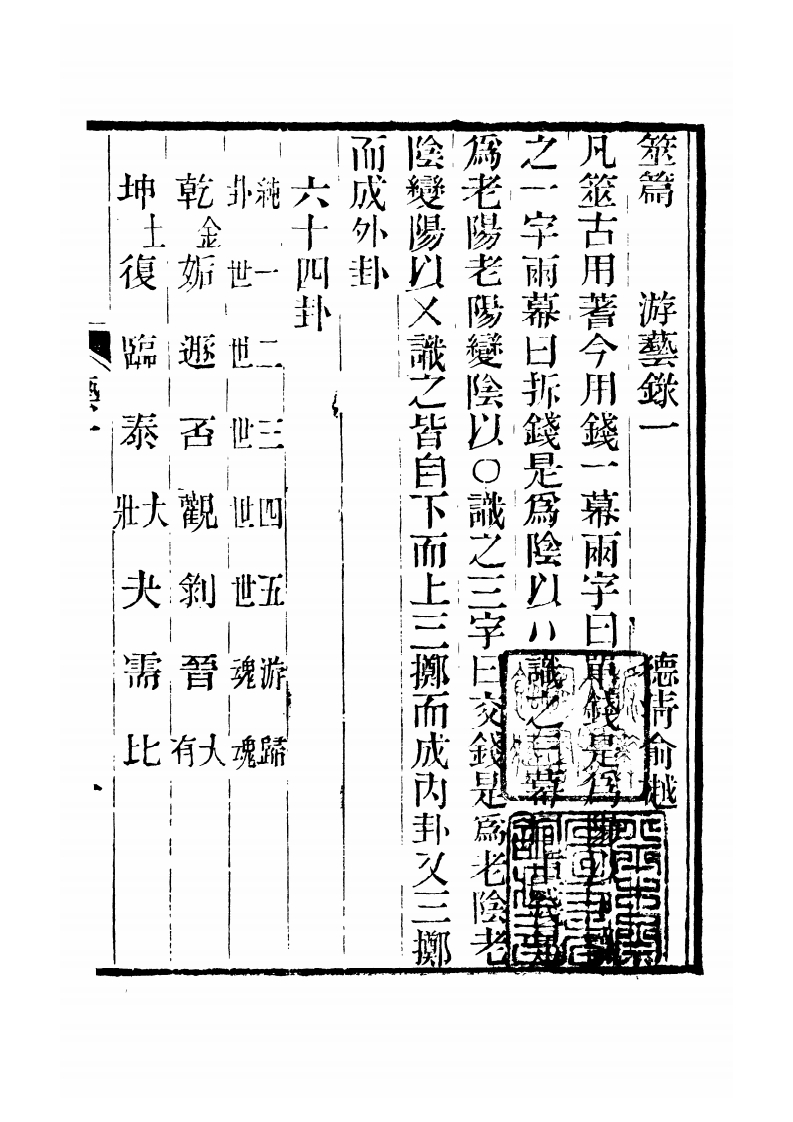 筮篇　游藝錄一　德清俞樾
凡筮古用蓍今用錢一幕兩字曰單錢是爲陽以識
之一字兩幕曰拆錢是爲陰以八識之三幕曰錢是
爲老陽老陽變陰以〇識之三字曰交錢是爲老陰老
陰變陽以乂識之皆自下而上三擲而成內卦又三擲
而成外卦
六十四卦
純卦　一世　二世　三世　四世　五世　游魂　歸魂
乾金　姤　遯　否　觀　剝　晉　大有
坤土　復　臨　泰　大壯　夬　需　比
藝一